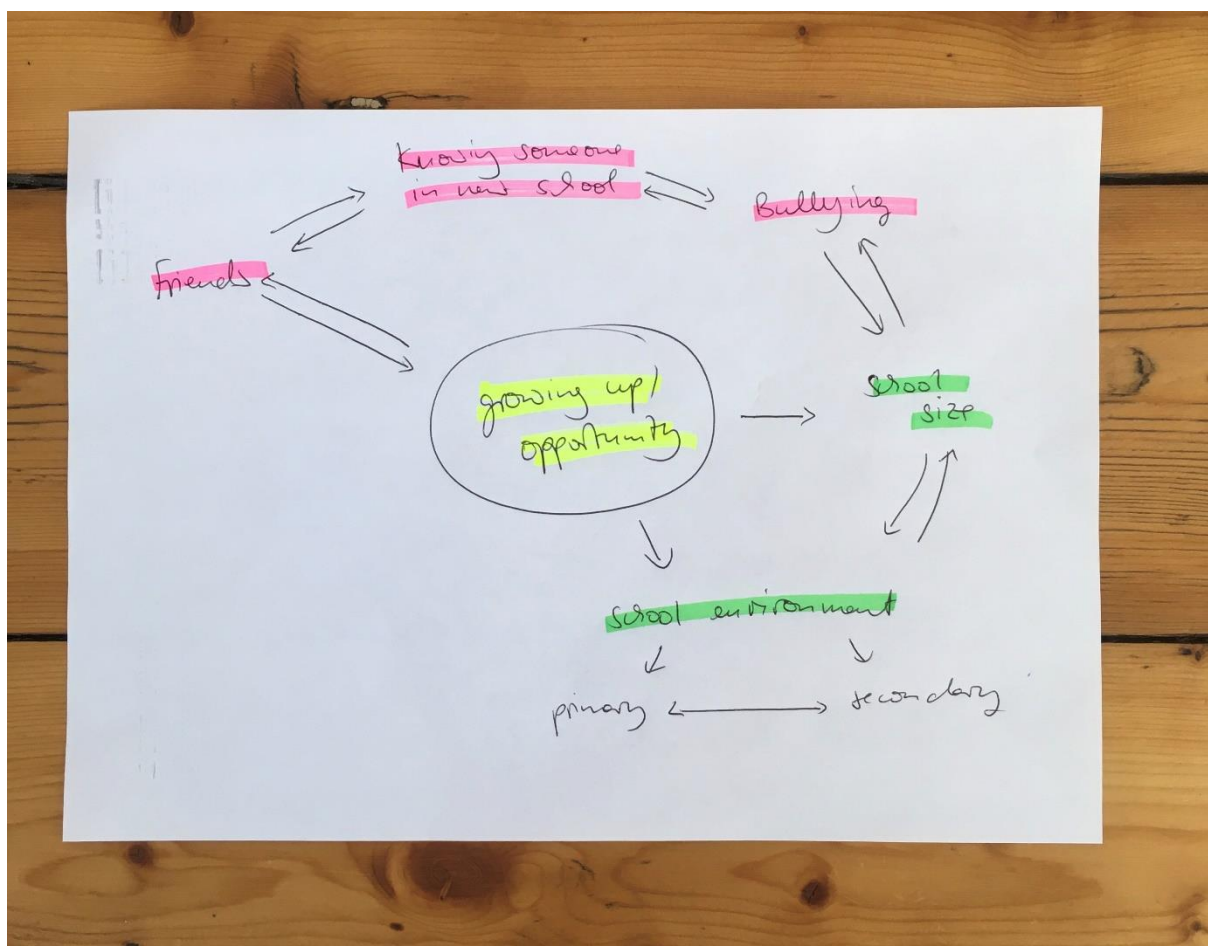 Knowing someone
in new school
Bullying
friends
growing up/
opportunity
school
size
school environment
primary
secondary